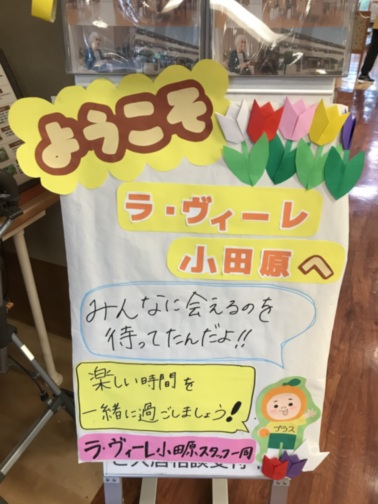 ようこそ
ラ・ヴィーレ
小田原へ
みんなに会えるのを
待ってたんだよ!!
楽しい時間を
一緒に過ごしましょう!
プラス
ラ・ヴィーレ小田原スタッフ一同